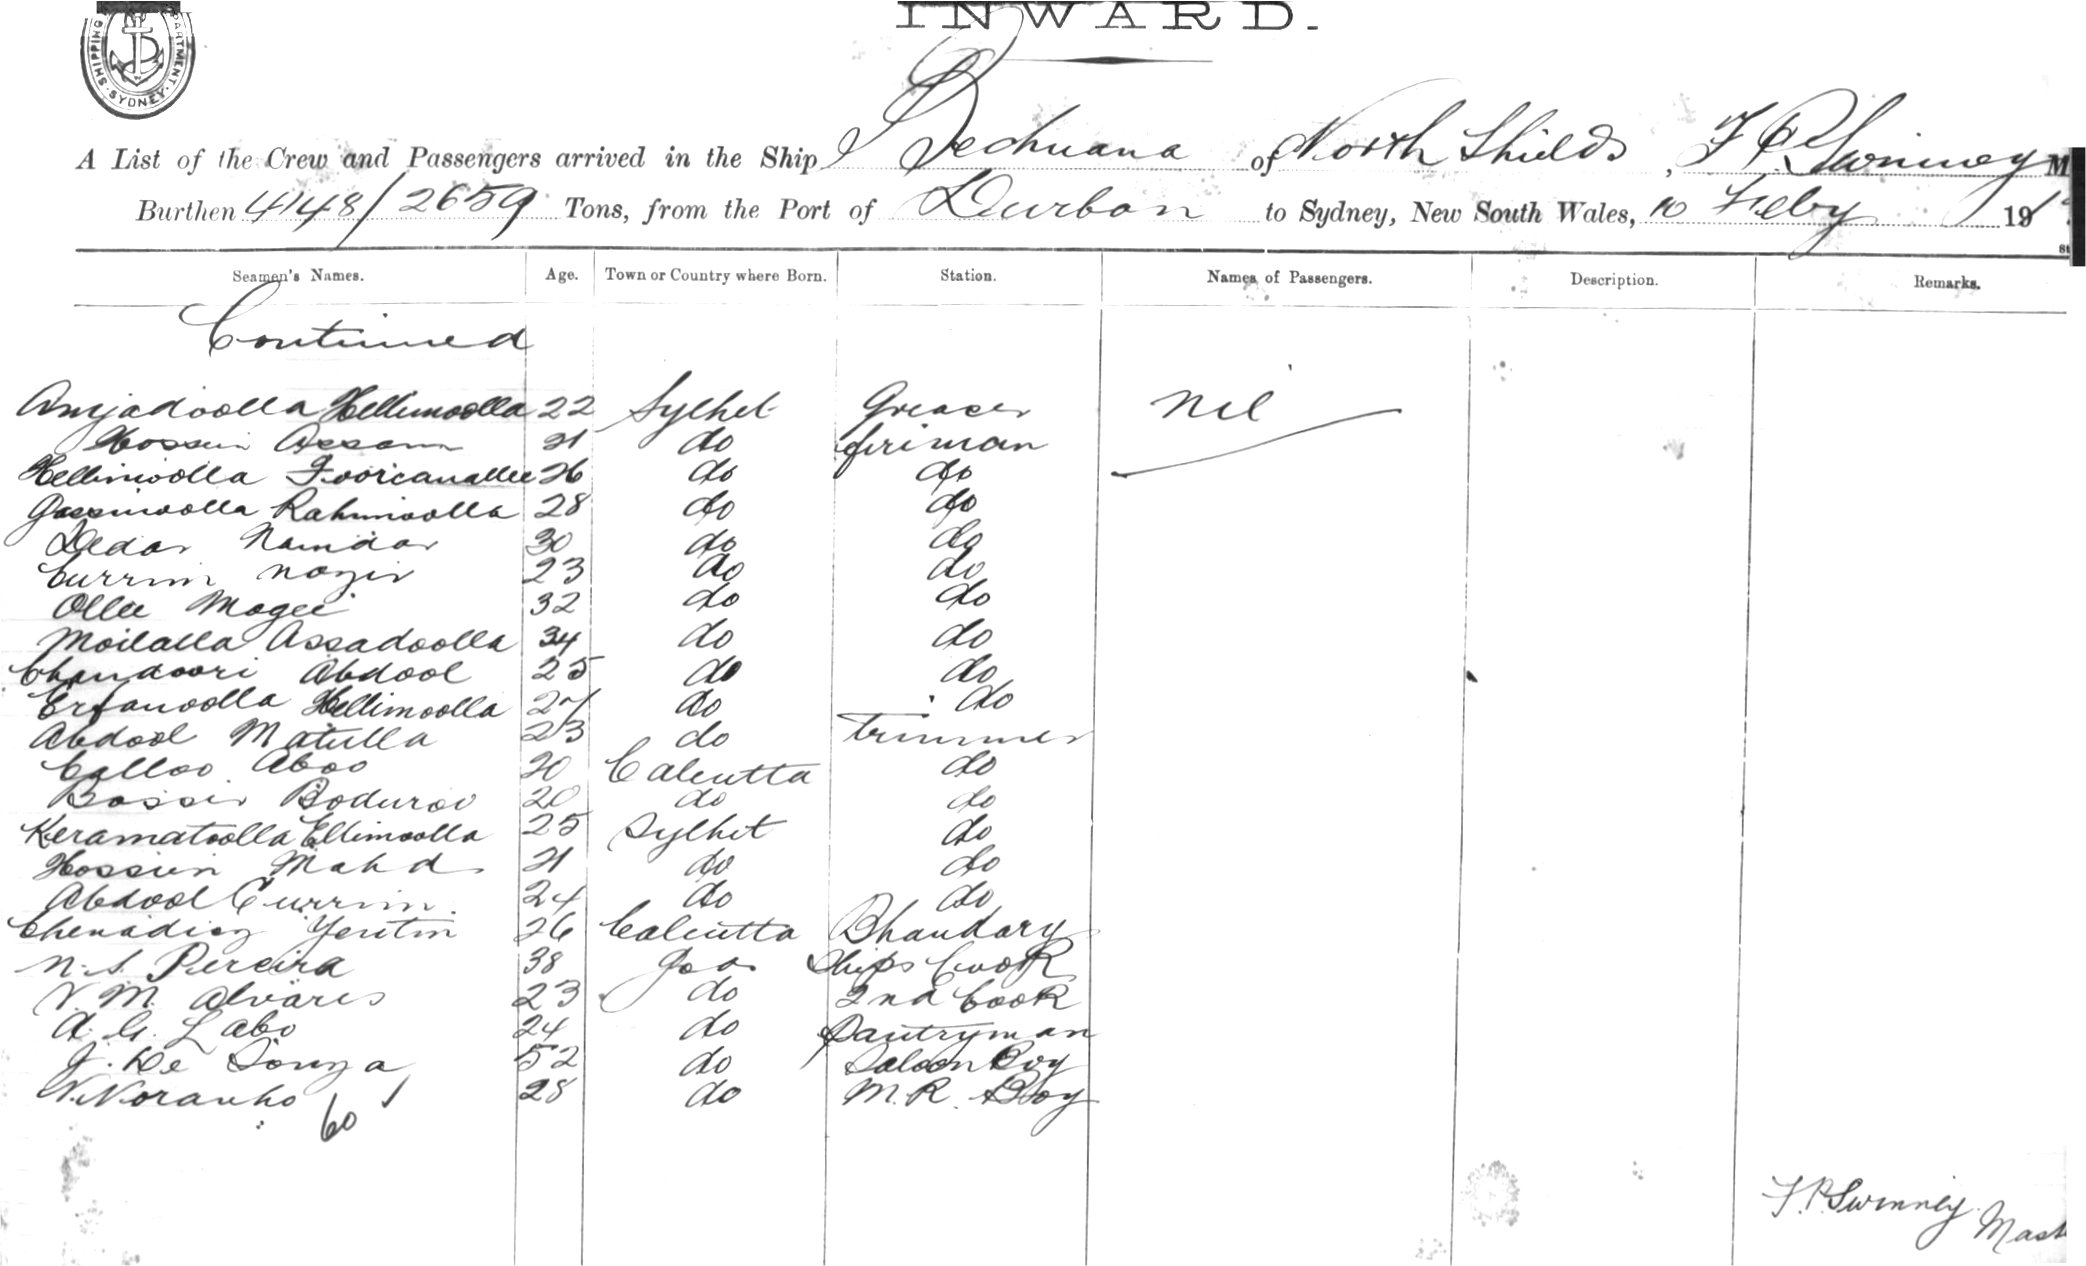 INWARD.
SHIPPING DEPARTMENT. SYDNEY.
A List of the Crew and Passengers arrived in the Ship Bechuana of North Shields, F P Swinney M
Burthen 4148/2659 Tons, from the Port of Durban to Sydney, New South Wales, 10 Feby 191
Seamen's Names. Age. Town or Country where Born. Station. Names of Passengers. Description. Remarks.
Continued
Amjadoolla Hellimoolla 22 Sylhet Greaser Nil
Hossein Assam 21 do fireman
Hellimoolla Foorcanallee 26 do do
Gassimoolla Rahimoolla 28 do do
Dedar Namdar 30 do do
Currim Nazir 23 do do
Ollee Magee 32 do do
Moilalla Assadoolla 34 do do
Chandoori Abdool 25 do do
Erfanoolla Hellimoolla 27 do do
Abdool Matulla 23 do trimmer
Calloo Aboo 20 Calcutta do
Bassir Boduroo 20 do do
Keramatoolla Ellimoolla 25 Sylhet do
Hossein Mahd 21 do do
Abdool Currim 24 do do
26 Calcutta Bhandary
N. S. Pereira 38 Goa Ships Cook
V. M. Alvares 23 do 2nd Cook
A. G. Labo 24 do Pantryman
J. De Souza 52 do Saloon Boy
N. Noranho 28 do M. R. Boy
60
F. P. Swinney Mast